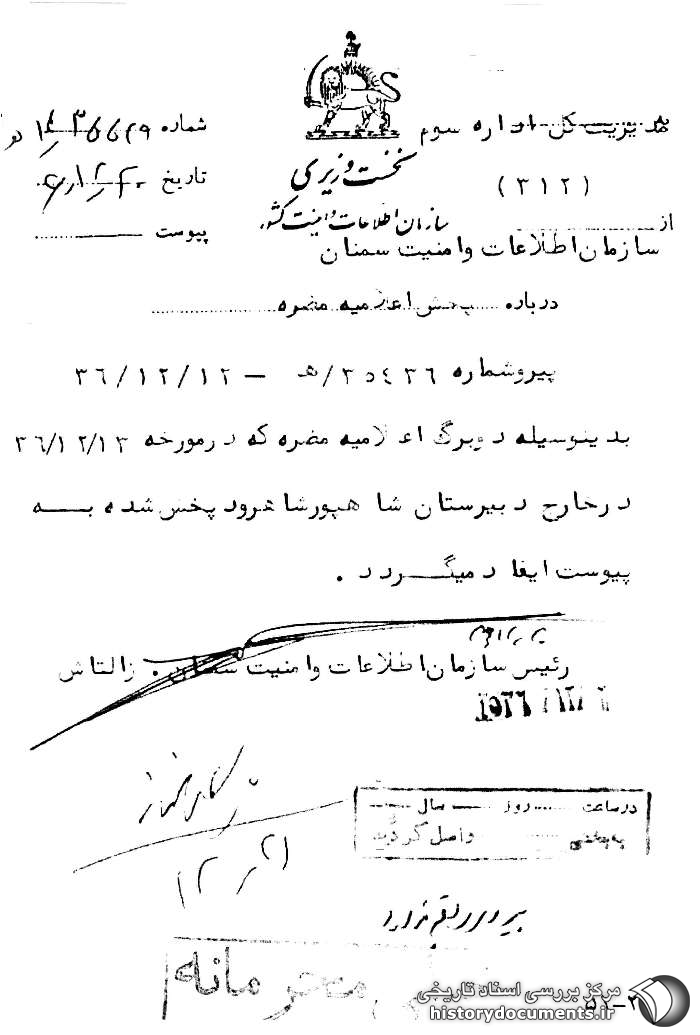 مدیریت کل اداره سوم
(۳۱۲)
نخست وزیری
سازمان اطلاعات و امنیت کشور
شماره
تاریخ
پیوست
از
سازمان اطلاعات و امنیت سمنان
درباره پخش اعلامیه مضره
پیرو شماره ۲۵۴۳۶/هـ – ۳۶/۱۲/۱۲
بدینوسیله دوبرگ اعلامیه مضره که در مورخه ۳۶/۱۲/۱۳
در خارج دبیرستان شاهپور شاهرود پخش شده به
پیوست ایفاد میگردد .
رئیس سازمان اطلاعات و امنیت سمنان . زالتاش
در ساعت روز سال
به بخش واصل گردید
محرمانه
۵۱-۲
مرکز بررسی اسناد تاریخی
historydocuments.ir